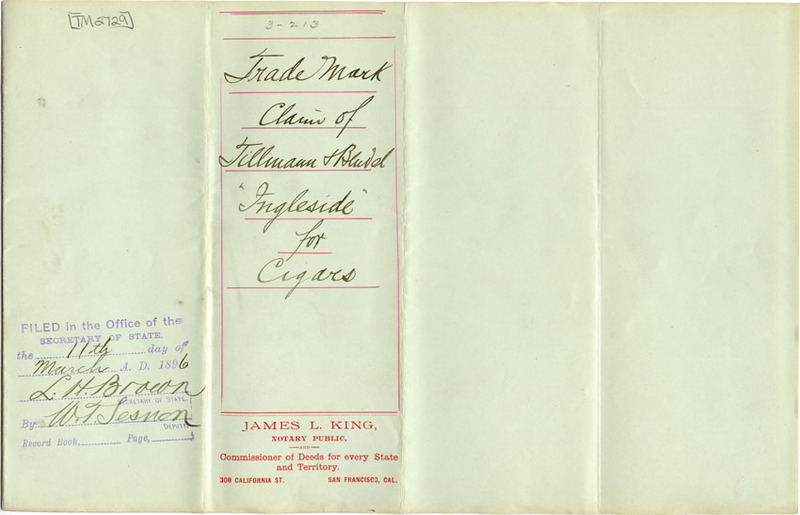 TM2729
3-213
Trade Mark
Claim of
Tillmann & Bendel
"Ingleside"
for
Cigars
FILED in the Office of the
SECRETARY OF STATE.
the 11th day of
March A. D. 1896
L. H. Brown
SECRETARY OF STATE.
By W. T. Sesnon
DEPUTY.
Record Book, Page,
JAMES L. KING,
NOTARY PUBLIC,
AND
Commissioner of Deeds for every State
and Territory.
308 CALIFORNIA ST. SAN FRANCISCO, CAL.